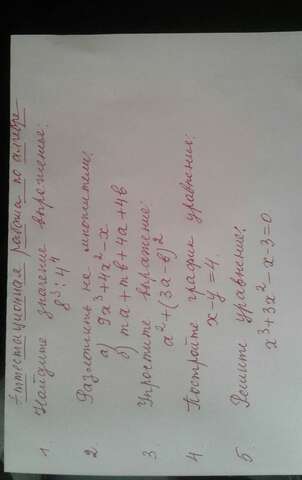 Аттестационная работа по алгебре
1. Найдите значение выражения:
8⁵ : 4⁴
2. Разложить на множители:
а) 9x³+4x²-x
б) ma+mb+4a+4b
3. Упростите выражение:
a²+(3a-b)²
4. Постройте график уравнения:
x-y=4.
5. Решите уравнение:
x³+3x²-x-3=0